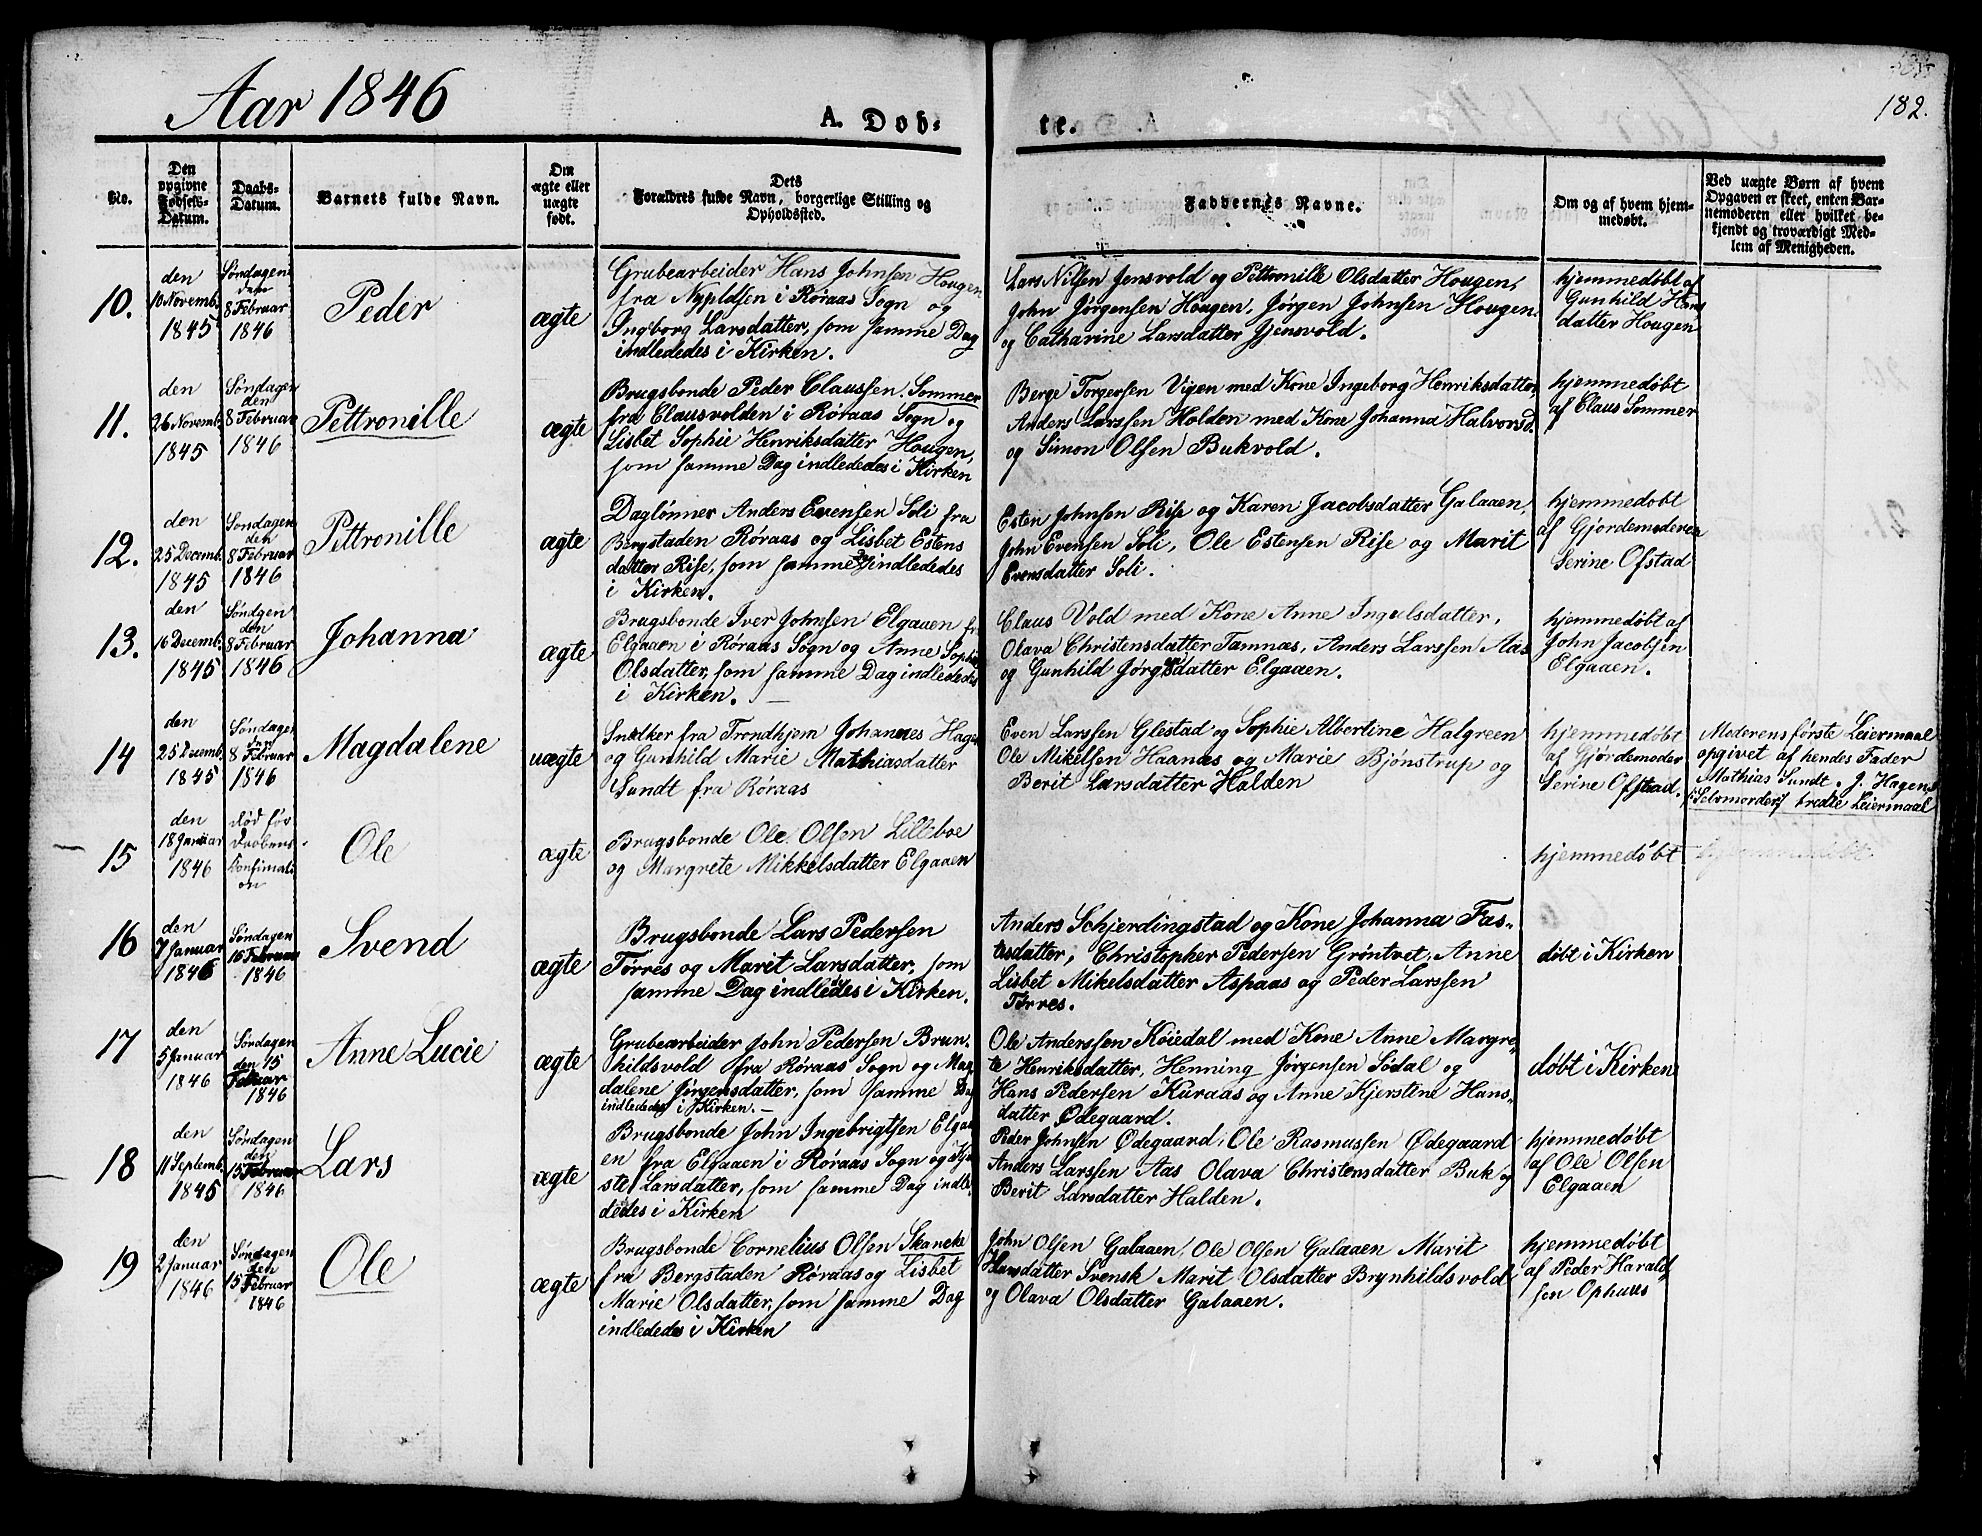 Aar 1846
A. Döb-
te.
182.
No.
Den opgivne Fødsels-Datum.
Daabs-Datum.
Barnets fulde Navn.
Om ægte eller uægte født.
Dets Forældres fulde Navn, borgerlige Stilling og Opholdssted.
Faddernes Navne.
Om og af hvem hjemmedøbt.
Ved uægte Børn af hvem Opgaven er skeet, enten Barnemoderen eller hvilket bekjendt og troværdigt Medlem af Menigheden.
10.
den
10 Novemb.
1845
Søndagen
den
8 Februar
1846
Peder
ægte
Grubearbeider Hans Johnsen Hougen
fra Nypldsen i Røraas Sogn og
Ingborg Larsdatter, som samme Dag
indlededes i Kirken.
Lars Nilsen Jensvold og Pettronille Olsdatter Hougen,
John Jörgensen Hougen, Jörgen Johnsen Hougen
og Catharine Larsdatter Gjensvold.
hjemmedøbt af
Gunhild Hans
datter Hougen
11.
den
26 Novemb.
1845
Søndagen
den
8 Februar
1846
Pettronille
ægte
Brugsbonde Peder Claussen Sommer
fra Clausvolden i Røraas Sogn og
Lisbet Sophie Henriksdatter Hougen,
som samme Dag indlededes i Kirken
Berge Torgersen Vigen med Kone Ingeborg Henriksdatter,
Anders Larssen Holden med Kone Johanna Halvorsd.
og Simon Olsen Bukvold.
hjemmedøbt
af Claus Sommer
12.
den
25 Decemb.
1845
Søndagen
den
8 Februar
1846
Pettronille
ægte
Daglønner Anders Evensen Soli fra
Bergstaden Røraas og Lisbet Estens
datter Rise, som samme Dag indlededes
i Kirken.
Esten Johnsen Rise og Karen Jacobsdatter Galaaen,
John Evensen Soli, Ole Estensen Rise og Marit
Evensdatter Soli.
hjemmedøbt
af Gjordemoderen
Serine Ofstad
13.
den
16 Decemb.
1845
Søndgen
den
8 Februar
1846
Johanna
ægte
Brugsbonde Iver Johnsen Elgaaen fra
Elgaaen i Røraas Sogn og Anne Sophie
Olsdatter, som samme Dag indlededes
i Kirken. –
Claus Vold med Kone Anne Ingelsdatter,
Olava Christensdatter Tamnæs, Anders Larssen Aas
og Gunhild Jörgensdatter Elgaaen.
hjemmedøbt af
John Jacobsen
Elgaaen.
14
den
25 Decemb.
1845
Søndagen
den
8 Februar
1846
Magdalene
uægte
Snedker fra Trondhjem Johannes Hagen
og Gunhild Marie Mathiasdatter
Sundt fra Røraas
Even Larssen Glestad og Sophie Albertine Halgreen
Ole Mikelsen Haanæs og Marie Bjönstrup og
Berit Larsdatter Halden
hjemmedøbt
af Gjördemoder
Serine Ofstad.
Moderens første Leiermaal
opgivet af hendes Fader
Mathias Sundt. J. Hagens
(:Selvmorder:) tredie Leiermaal
15
den
18 Januar
1846
død før
Daabens
Confirmati
on
Ole
ægte
Brugsbonde Ole Olsen Lilleboe
og Margrete Mikkelsdatter Elgaaen
hjemmedøbt
16
den
7 Januar
1846
Søndagen
15 Februar
1846
Svend
ægte
Brugsbonde Lars Pedersen
Tørres og Marit Larsdatter, som
samme Dag indledes i Kirken.
Anders Schjerdingstad og Kone Johanna Fas-
tesdatter, Christopher Pedersen Gröntvet, Anne
Lisbet Mikelsdatter Aspaas og Peder Larssen
Tørres.
døbt i Kirken
17
den
5 Januar
1846
Søndagen
den 15
Februar
1846
Anne Lucie
ægte
Grubearbeider John Pedersen Bryn-
hildsvold fra Røraas Sogn og Mag
dalene Jörgensdatter, som samme Dag
indlededes i Kirken. –
Ole Anderssen Køiedal med Kone Anne Margre-
te Henriksdatter, Henning Jörgensen Södal og
Hans Pedersen Kuraas og Anne Kjerstine Hans-
datter Ødegaard.
døbt i Kirken
18
den
11 Septemb.
1845
Søndagen
den
15 Februar
1846
Lars
ægte
Brugsbonde John Ingebrigtsen Elgaa
en fra Elgaaen i Røraas Sogn og Kjer
sti Larsdatter, som samme Dag indle-
dedes i Kirken
Peder Johnsen Ødegaard, Ole Rasmussen Ødegaard
Anders Larssen Aas Olava Christensdatter Buk og
Berit Larsdatter Halden.
hjemmedøbt
af Ole Olsen
Elgaaen
19
den
2 Januar
1846
Søndagen
den
15 Februar
1846
Ole
ægte
Brugsbonde Cornelius Olsen Skancke
fra Bergstaden Røraas og Lisbet
Marie Olsdatter, som samme Dag
indlededes i Kirken
John Olsen Galaaen, Ole Olsen Galaaen Marit
Hansdatter Svensk Marit Olsdatter Brynhildsvold
og Olava Olsdatter Galaaen.
hjemmedøbt
af Peder Harald
sen Ophuus